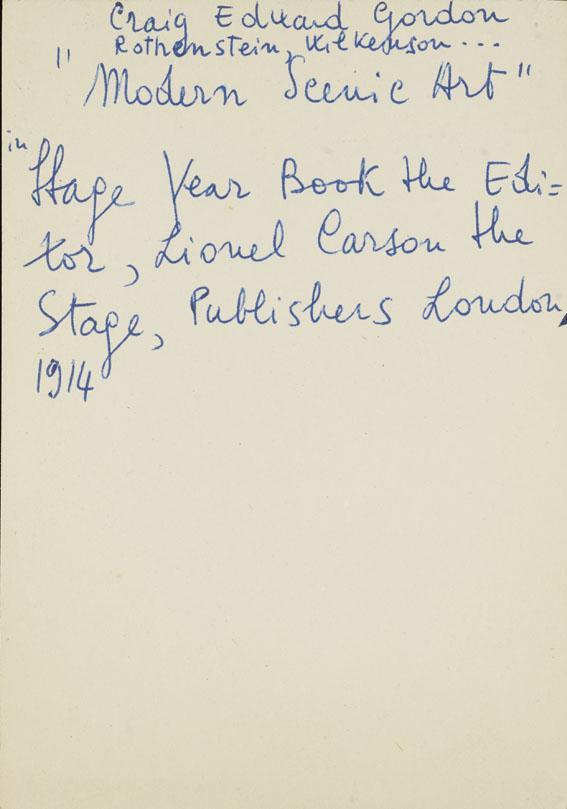 Craig Edward Gordon
Rothenstein, Wilkenson...
"Modern Scenic Art"
in
Stage Year Book the Edi=
tor, Lionel Carson the
Stage, Publishers London,
1914